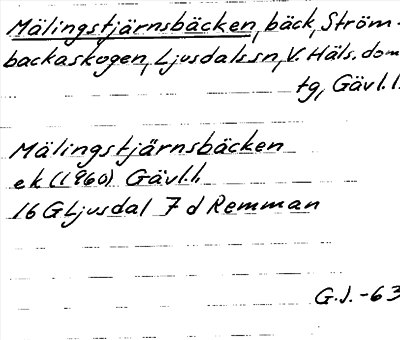 Mälingstjärnsbäcken, bäck, Ström-
backaskogen, Ljusdals sn, V. Häls. dom
tg, Gävl. l.
Mälingstjärnsbäcken
ek (1960) Gävl.l,
16 G Ljusdal 7 d Remman
G.J. -63